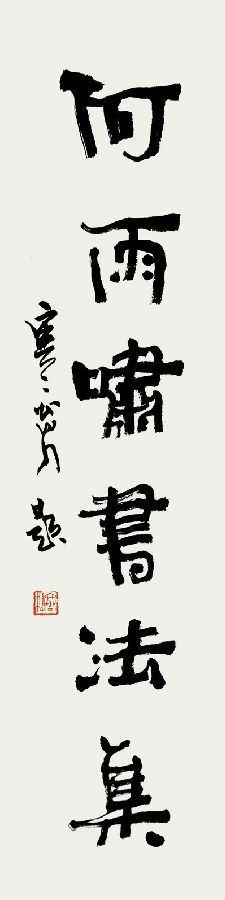 何雨嘯書法集
題